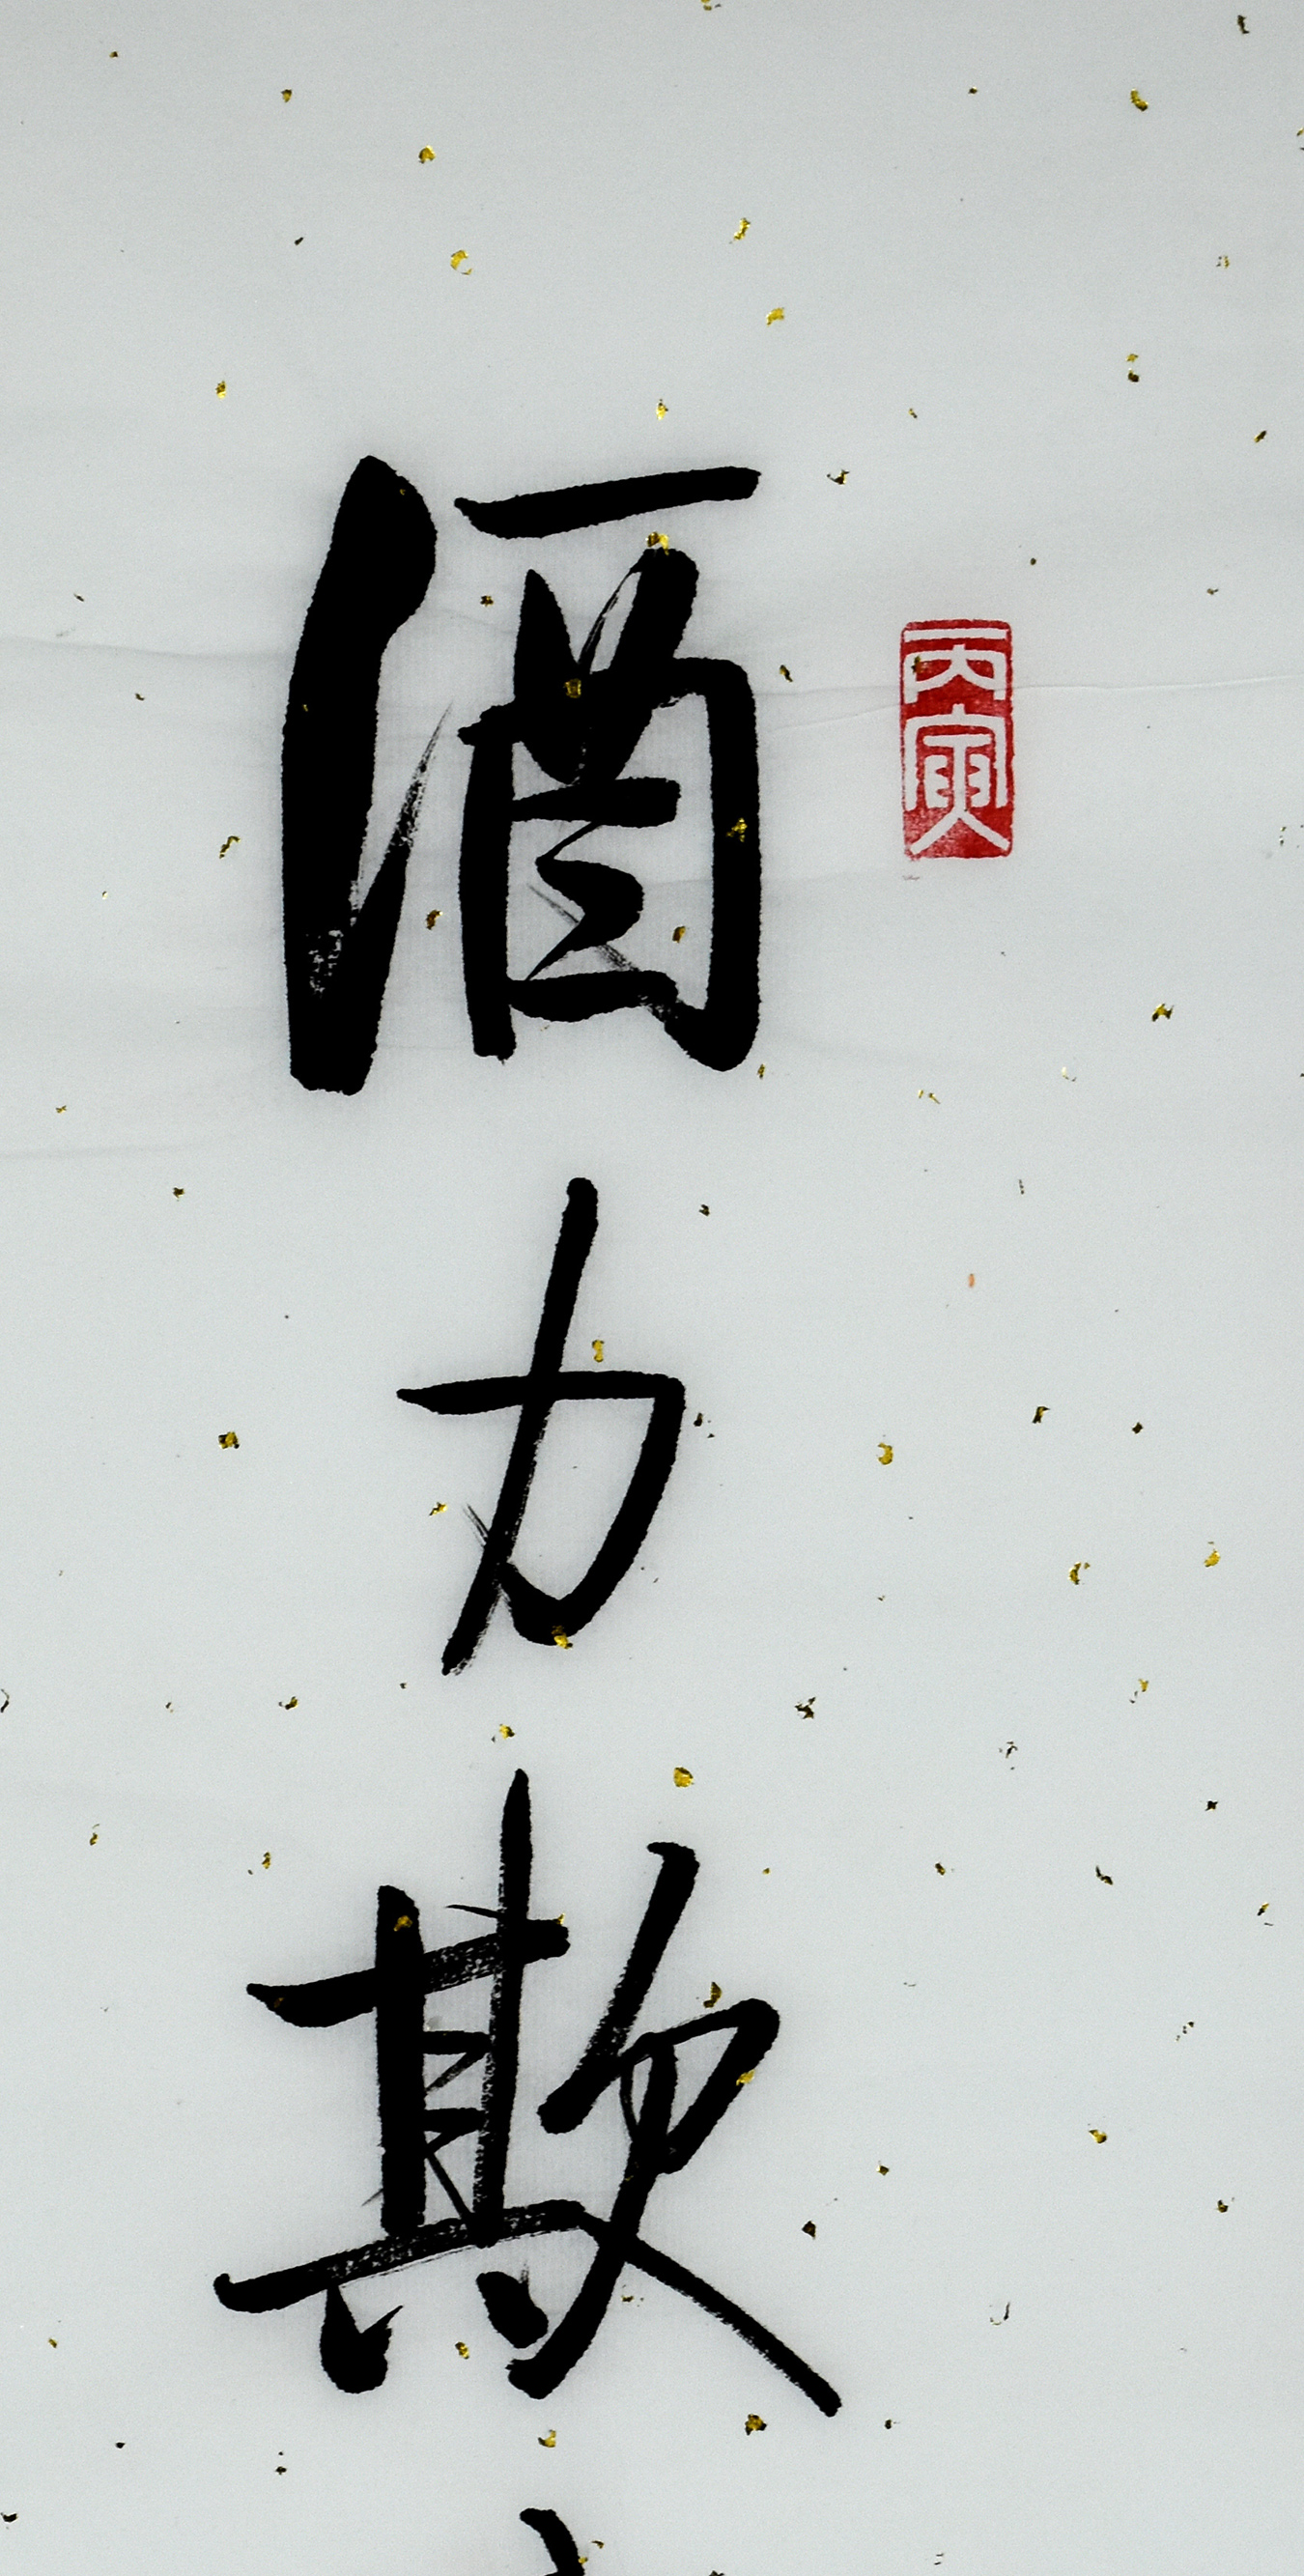 丙寅
酒力欺